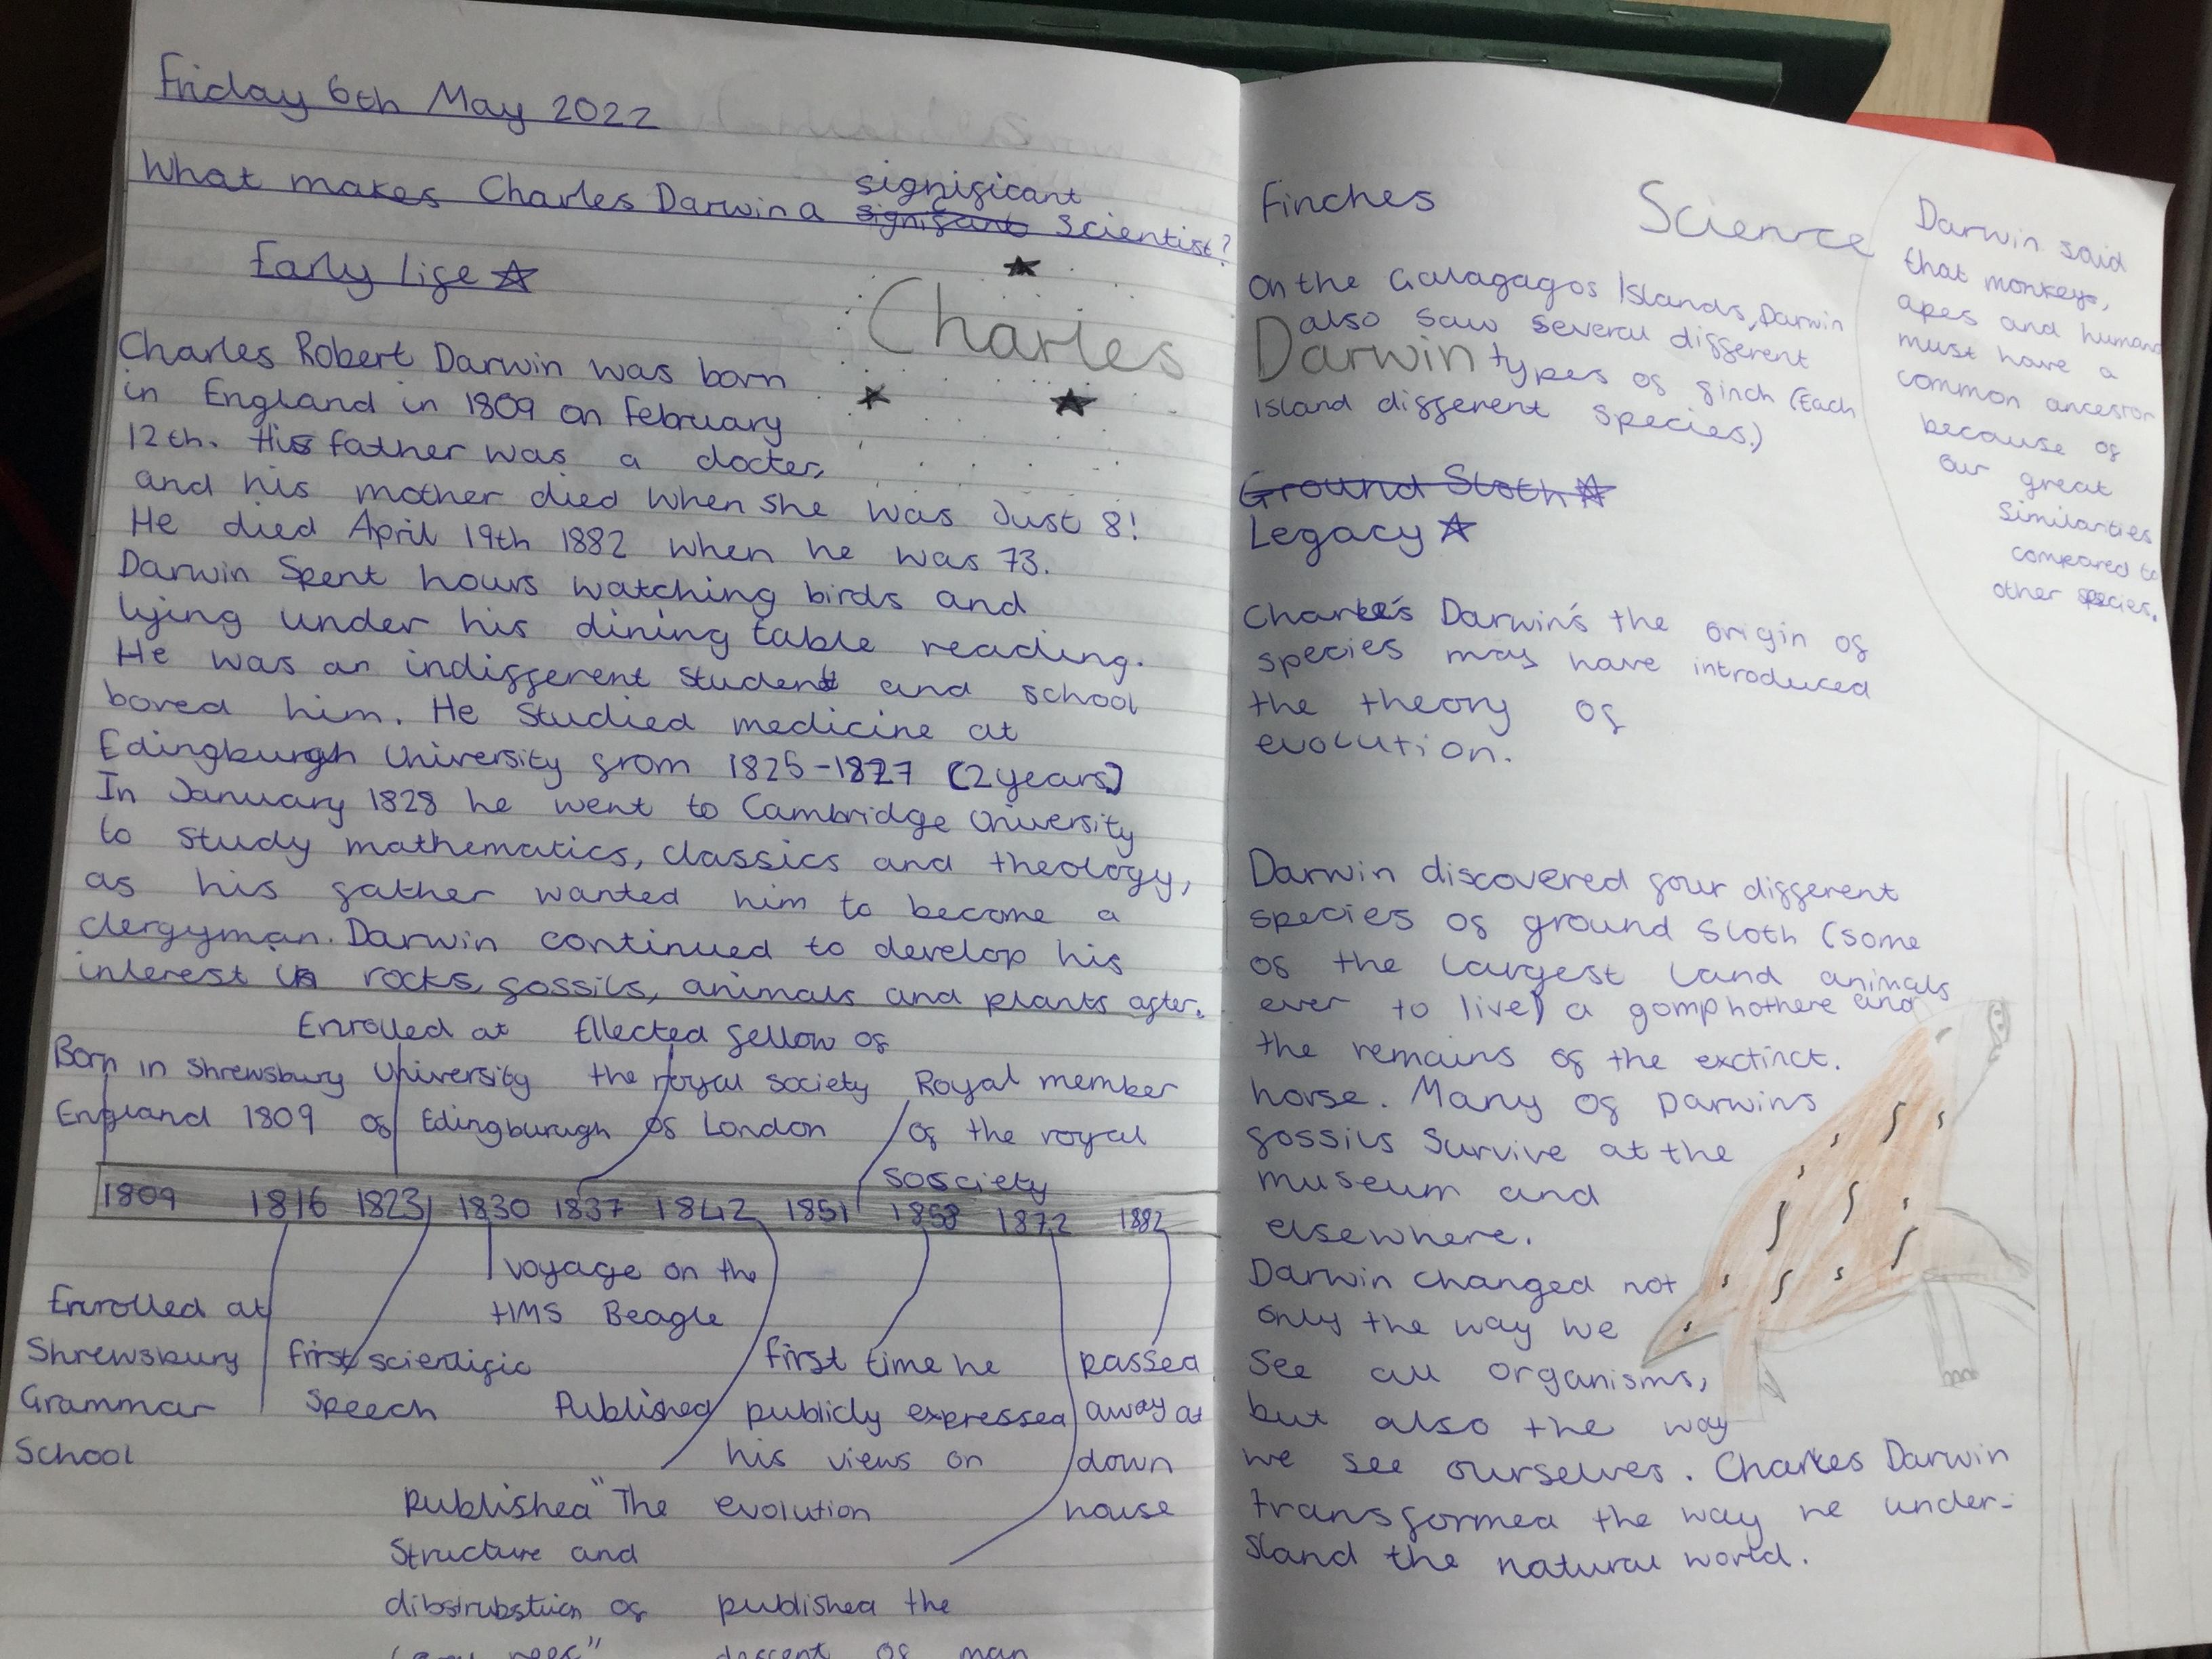 Friday 6th May 2022
What makes Charles Darwin a significant Scientist?
Early Life
Charles
Charles Robert Darwin was born
in England in 1809 on February
12th. His father was a docter,
and his mother died when she was Just 8!
He died April 19th 1882 when he was 73.
Darwin Spent hours watching birds and
lying under his dining table reading.
He was an indifferent student and school
bored him. He studied medicine at
Edingburgh University from 1825-1827 (2years)
In January 1828 he went to Cambridge University
to study mathematics, classics and theology,
as his father wanted him to become a
clergyman. Darwin continued to develop his
interest in rocks, fossils, animals and plants after.
Born in Shrewsbury
England 1809
Enrolled at
University
of Edingburugh
Ellected fellow of
the royal society
of London
Royal member
of the royal
sosciety
1809 1816 1823 1830 1837 1842 1851 1858 1872 1882
Enrolled at
Shrewsbury
Grammar
School
first scientific
Speech
voyage on the
HMS Beagle
Published
published "The
Structure and
of
first time he
publicly expressed
his views on
evolution
published the
descent of man
passed
away at
down
house
Finches
Science
On the Galagagos Islands, Darwin
also saw several different
Darwin
types of finch (Each
Island different species.)
Ground Sloth
Legacy
Charles's Darwin's the origin of
species may have introduced
the theory of
evolution.
Darwin discovered four different
species of ground sloth (some
of the largest land animals
ever to live) a gomphothere and
the remains of the exctinct.
horse. Many of Darwins
fossils survive at the
museum and
elsewhere.
Darwin changed not
only the way we
see all organisms,
but also the way
we see ourselves. Charles Darwin
transformed the way he under-
stand the natural world.
Darwin said
that monkeys,
apes and humans
must have a
common ancestor
because of
our great
similarities
compared to
other species.